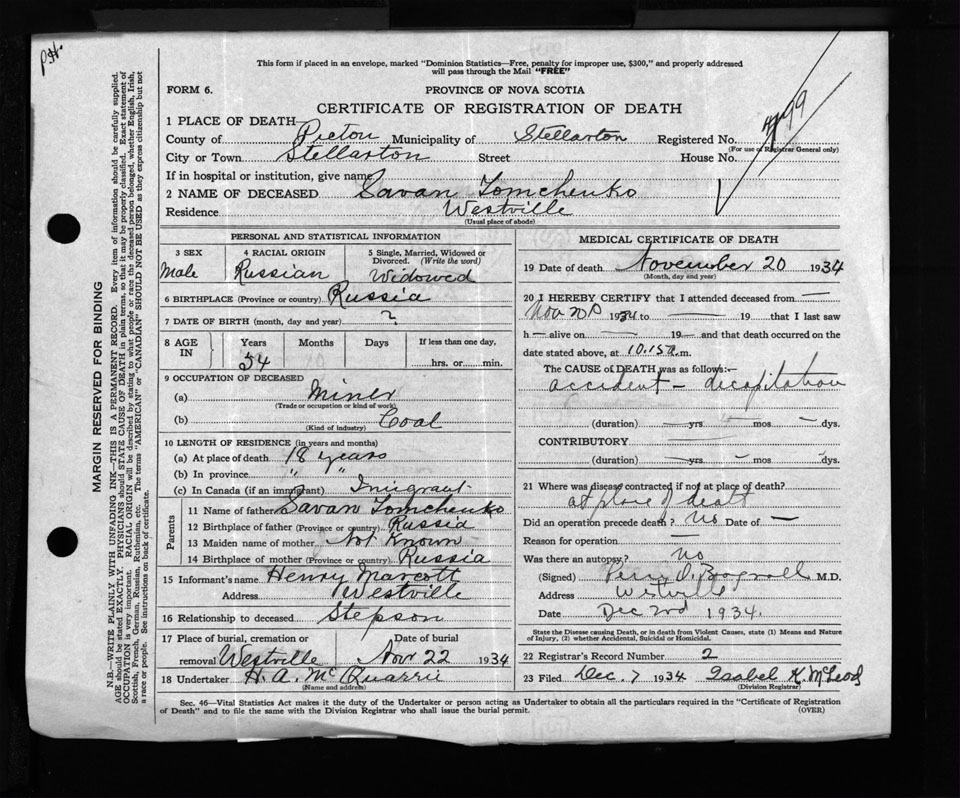 This form if placed in an envelope, marked "Dominion Statistics—Free, penalty for improper use, $300," and properly addressed
will pass through the Mail "FREE"
FORM 6.
PROVINCE OF NOVA SCOTIA
CERTIFICATE OF REGISTRATION OF DEATH
1 PLACE OF DEATH
County of Pictou Municipality of Stellarton Registered No.
(For use of Registrar General only)
City or Town Stellarton Street House No.
If in hospital or institution, give name
2 NAME OF DECEASED Savan Tomchenko
Residence Westville
(Usual place of abode)
PERSONAL AND STATISTICAL INFORMATION
3 SEX 4 RACIAL ORIGIN 5 Single, Married, Widowed or
Divorced. (Write the word)
Male Russian Widowed
6 BIRTHPLACE (Province or country) Russia
7 DATE OF BIRTH (month, day and year) ?
8 AGE IN Years Months Days If less than one day,
54 hrs. or min.
9 OCCUPATION OF DECEASED
(a) Miner
(Trade or occupation or kind of work)
(b) Coal
(Kind of industry)
10 LENGTH OF RESIDENCE (in years and months)
(a) At place of death 18 years
(b) In province " "
(c) In Canada (if an immigrant) Imigrant
Parents
11 Name of father Savan Tomchenko
12 Birthplace of father (Province or country) Russia
13 Maiden name of mother Not Known
14 Birthplace of mother (Province or country) Russia
15 Informant's name Henry Marcott
Address Westville
16 Relationship to deceased Stepson
17 Place of burial, cremation or Date of burial
removal Westville Nov 22 1934
18 Undertaker H. A. McQuarrie
(Name and address)
MEDICAL CERTIFICATE OF DEATH
19 Date of death November 20 1934
(Month, day and year)
20 I HEREBY CERTIFY that I attended deceased from —
Nov 20 1934 to — 19 — that I last saw
h — alive on — 19 — and that death occurred on the
date stated above, at 10.15 .m.
The CAUSE of DEATH was as follows:—
accident — decapitation
(duration) — yrs. — mos. — dys.
CONTRIBUTORY —
(duration) — yrs. — mos. — dys.
21 Where was disease contracted if not at place of death?
at place of death
Did an operation precede death? No Date of —
Reason for operation —
Was there an autopsy? No
(Signed) M.D.
Address Westville
Date Dec 2nd 1934.
State the Disease causing Death, or in death from Violent Causes, state (1) Means and Nature
of Injury, (2) whether Accidental, Suicidal or Homicidal.
22 Registrar's Record Number 2
23 Filed Dec. 7 1934 Isabel K. McLeod
(Division Registrar)
Sec. 46—Vital Statistics Act makes it the duty of the Undertaker or person acting as Undertaker to obtain all the particulars required in the "Certificate of Registration
of Death" and to file the same with the Division Registrar who shall issue the burial permit. (OVER)
MARGIN RESERVED FOR BINDING
N.B.—WRITE PLAINLY WITH UNFADING INK—THIS IS A PERMANENT RECORD. Every item of information should be carefully supplied.
AGE should be stated EXACTLY. PHYSICIANS should STATE CAUSE OF DEATH in plain terms, so that it may be properly classified. Exact statement of
OCCUPATION is very important. RACIAL ORIGIN will be described by stating to what people or race the deceased person belonged, whether English, Irish,
Scottish, French, German, Russian, Ruthenian, etc. The terms "AMERICAN" or "CANADIAN" SHOULD NOT BE USED as they express citizenship but not
a race or people. See instructions on back of certificate.